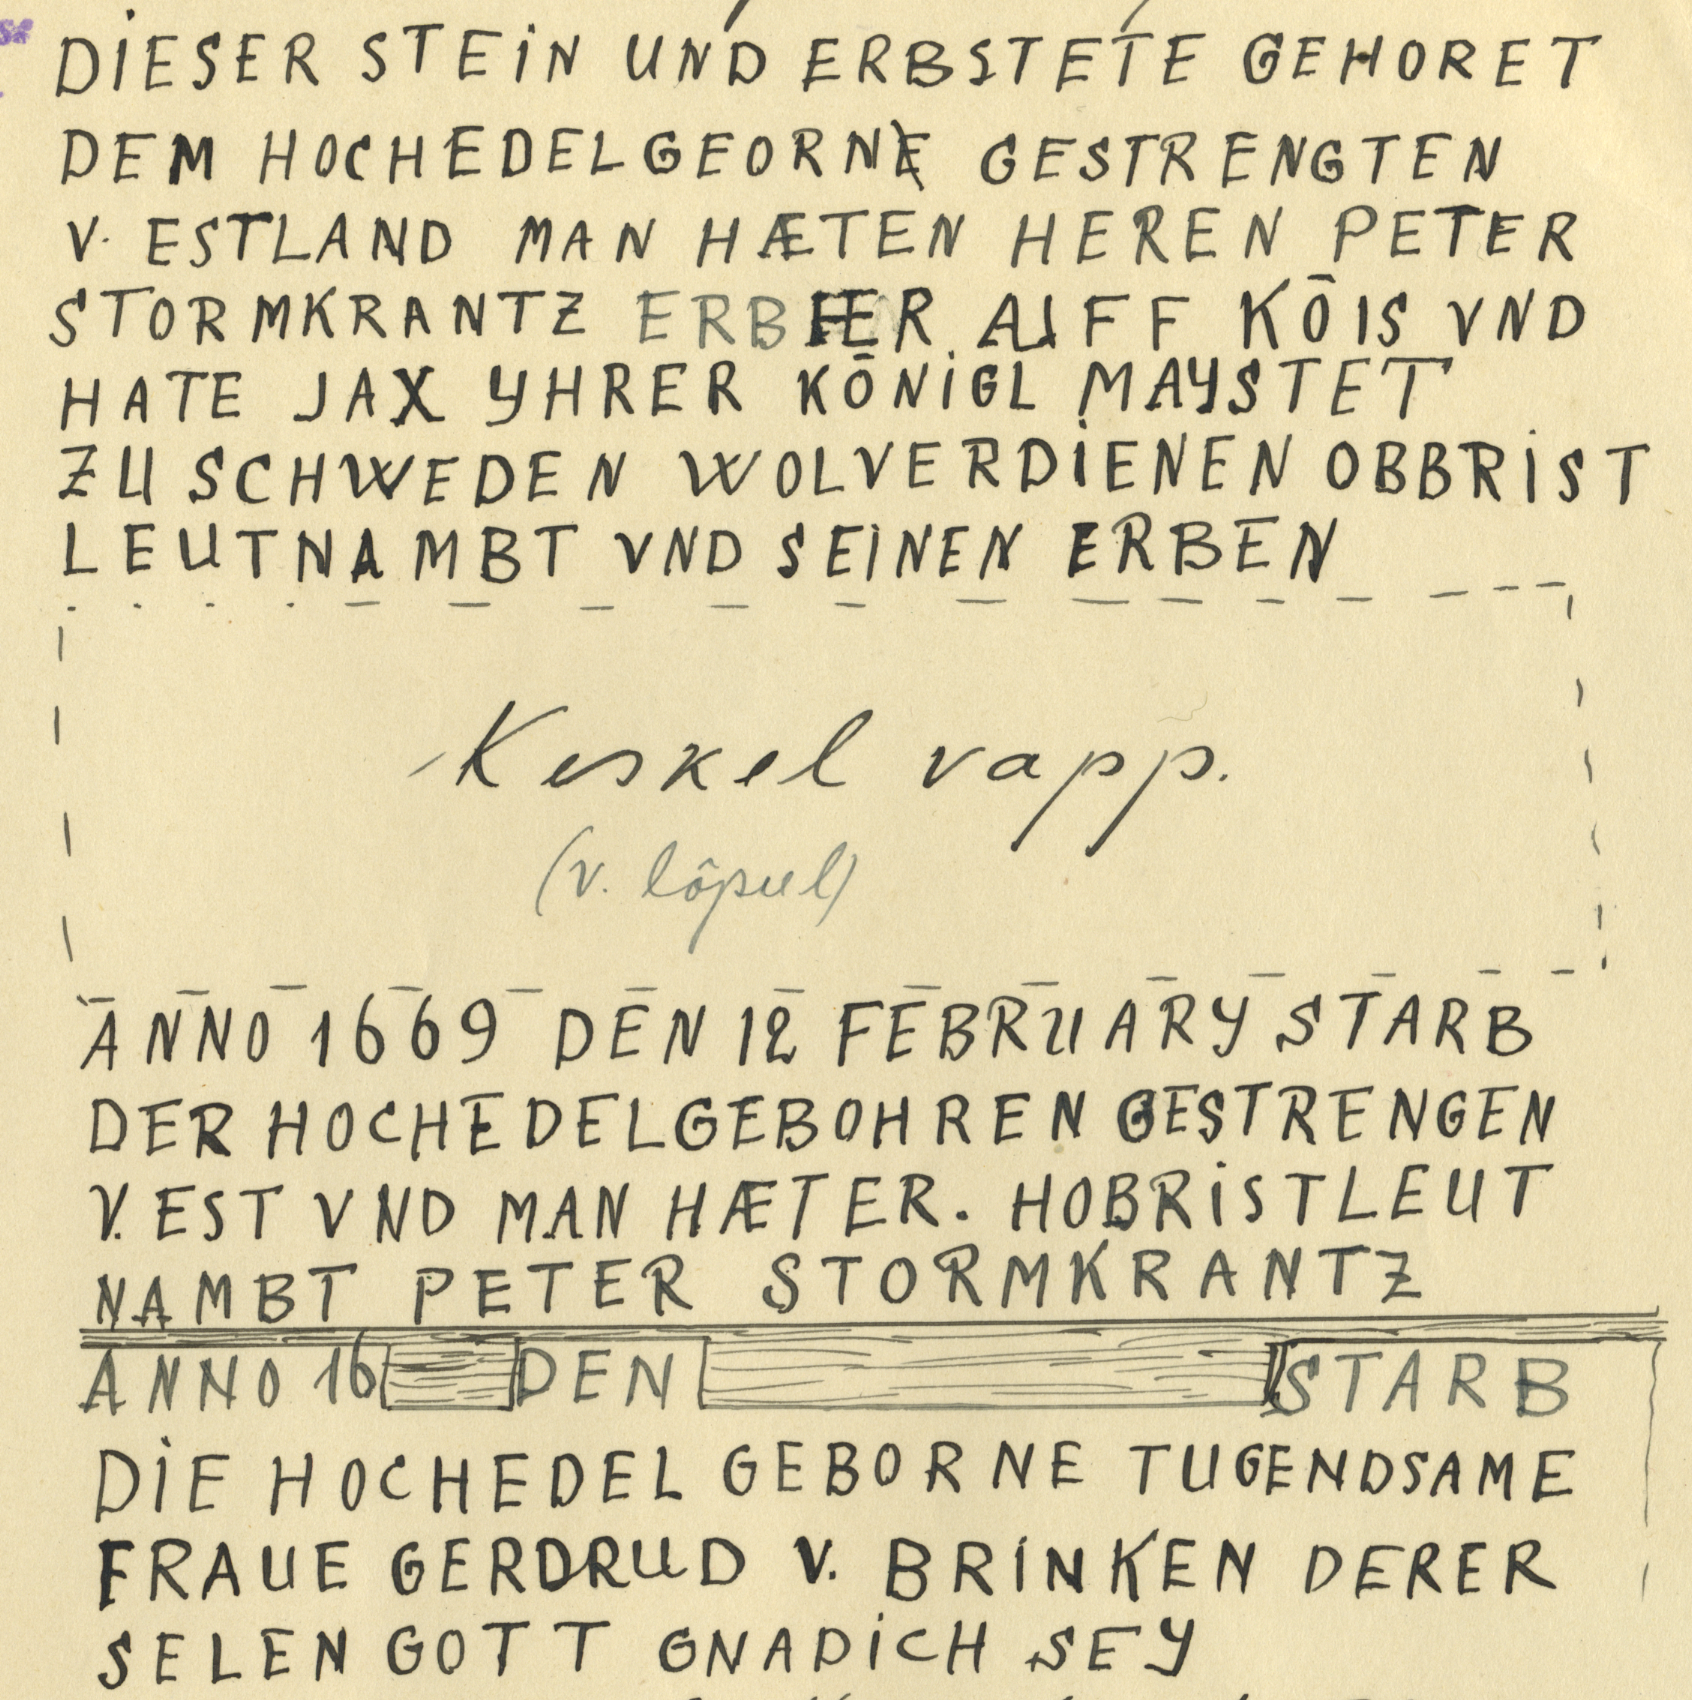 DIESER STEIN UND ERBSTETE GEHORET
DEM HOCHEDELGEORNE GESTRENGTEN
V. ESTLAND MAN HÆTEN HEREN PETER
STORMKRANTZ ERBHER AUFF KŌIS VND
HATE JAX YHRER KŌNIGL MAYSTET
ZU SCHWEDEN WOLVERDIENEN OBBRIST
LEUTNAMBT VND SEINEN ERBEN
Keskel vapp.
(v. lõpul)
ANNO 1669 DEN 12 FEBRUARY STARB
DER HOCHEDELGEBOHREN GESTRENGEN
V. EST VND MAN HÆTER. HOBRISTLEUT
NAMBT PETER STORMKRANTZ
ANNO 16 DEN STARB
DIE HOCHEDEL GEBORNE TUGENDSAME
FRAUE GERDRUD V. BRINKEN DERER
SELEN GOTT GNADICH SEY